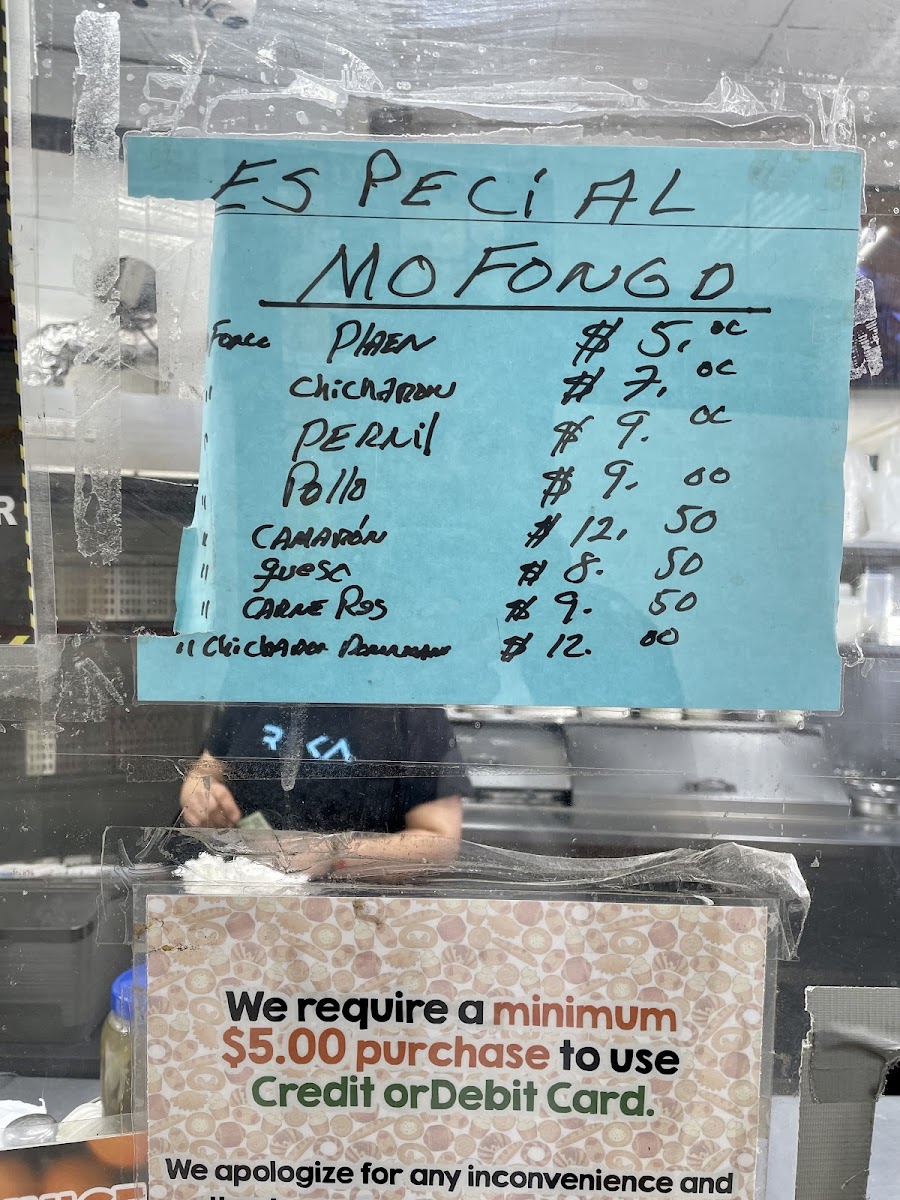 ESPECIAL
MOFONGO
PLAEN $ 5.00
" Chicharon $ 7.00
" PERNil $ 9.00
" Pollo $ 9.00
" CAMARÓN $ 12.50
" queso $ 8.50
" CARNE Res $ 9.50
" Chicharon $ 12.00
We require a minimum
$5.00 purchase to use
Credit orDebit Card.
We apologize for any inconvenience and